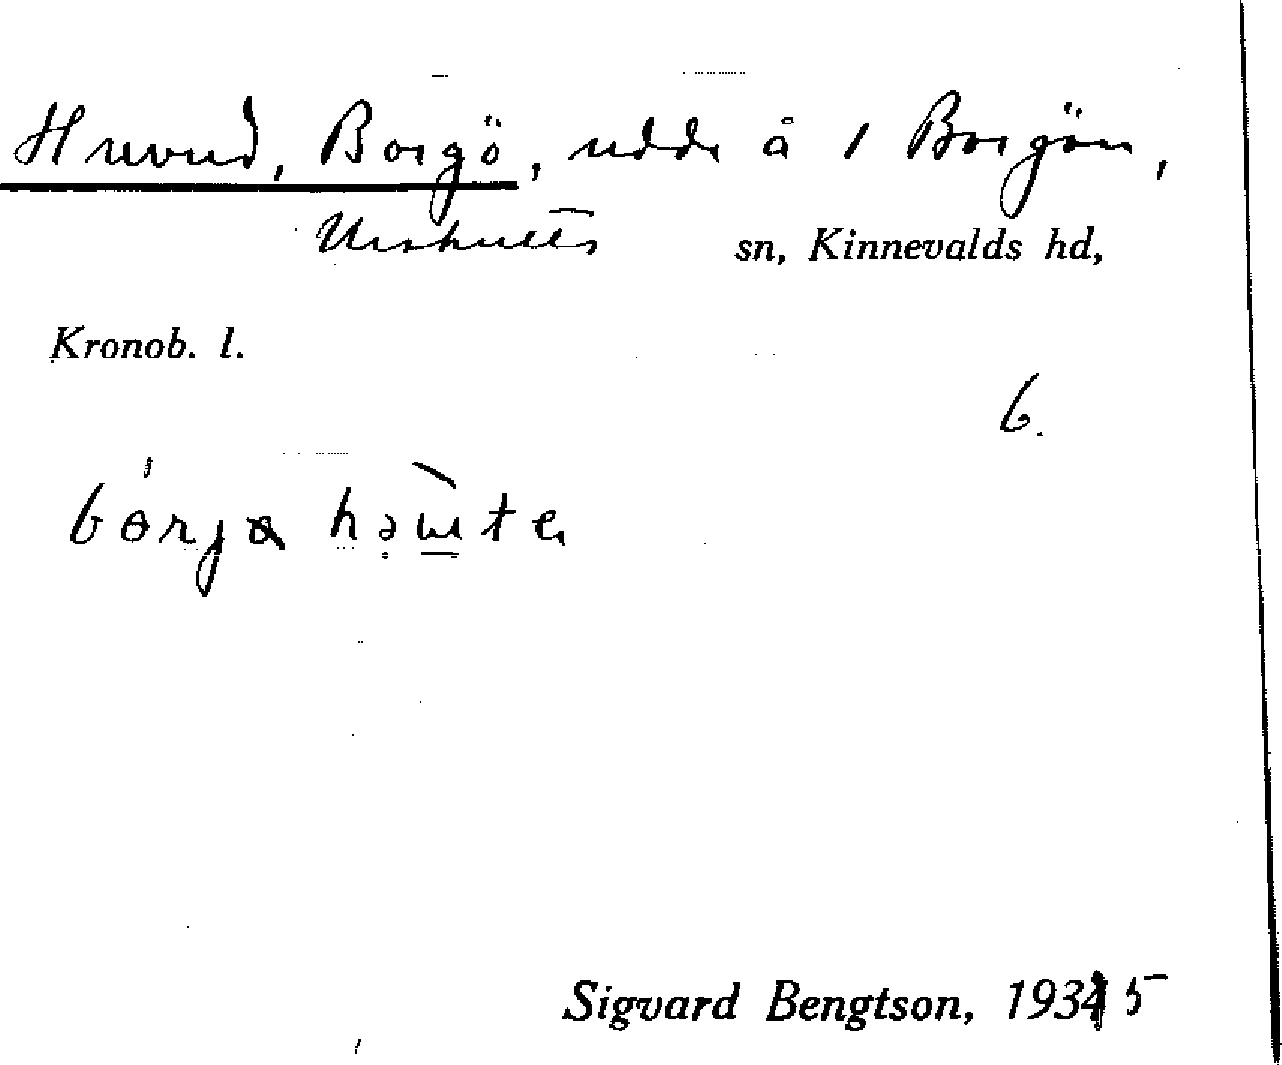 Huvud, Borgö, udde å 1 Borgön,
Urshults sn, Kinnevalds hd,
Kronob. l.
6.
Sigvard Bengtson, 1935